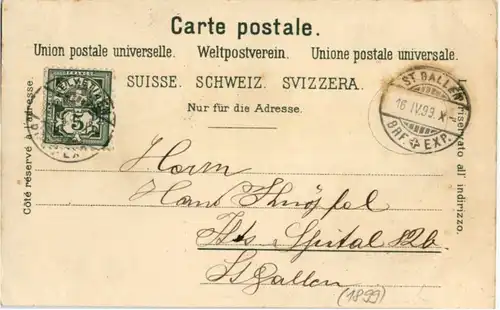 Carte postale.
Union postale universelle. Weltpostverein. Unione postale universale.
SUISSE. SCHWEIZ. SVIZZERA.
Nur für die Adresse.
Côté réservé à l'adresse.
riservato all' indirizzo.
5
ST. GALLEN
16 IV.99. X
BRF. EXP.
Herrn
Hans
Spital 82b
St Gallen
(1899)